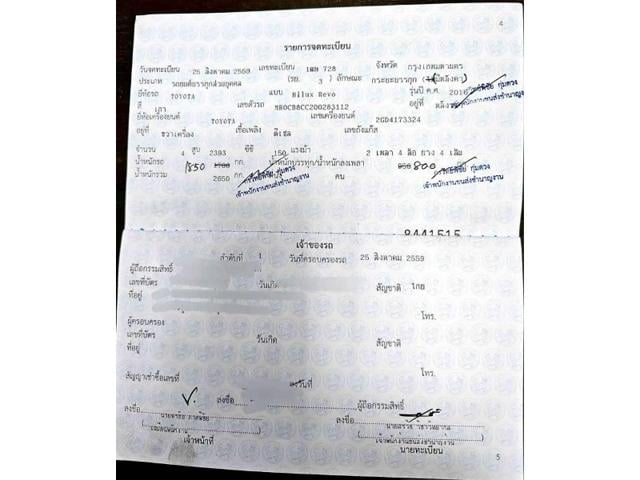 4
รายการจดทะเบียน
วันจดทะเบียน 25 สิงหาคม 2559 เลขทะเบียน 728 จังหวัด กรุงเทพมหานคร
ประเภท รถยนต์บรรทุกส่วนบุคคล (รย. 3 ) ลักษณะ กระบะบรรทุก
ยี่ห้อรถ TOYOTA แบบ Hilux Revo รุ่นปี ค.ศ. 2016
สี เทา เลขตัวรถ MR0CB8CC200283112 อยู่ที่
ยี่ห้อเครื่องยนต์ TOYOTA เลขเครื่องยนต์ 2GD4173324
อยู่ที่ ขวาเครื่อง เชื้อเพลิง ดีเซล เลขถังแก๊ส
จำนวน 4 สูบ 2393 ซีซี 150 แรงม้า 2 เพลา 4 ล้อ ยาง 4 เส้น
น้ำหนักรถ 1850 1700 กก. น้ำหนักบรรทุก/น้ำหนักลงเพลา 950 800
น้ำหนักรวม 2650 กก. คน
กุ่มดวง
เจ้าพนักงานขนส่งชำนาญงาน
กุ่มดวง
เจ้าพนักงานขนส่งชำนาญงาน
8441515
เจ้าของรถ
ลำดับที่ 1 วันที่ครอบครองรถ 25 สิงหาคม 2559
ผู้ถือกรรมสิทธิ์
เลขที่บัตร วันเกิด สัญชาติ ไทย
ที่อยู่
โทร.
ผู้ครอบครอง
เลขที่บัตร วันเกิด สัญชาติ
ที่อยู่
โทร.
สัญญาเช่าซื้อเลขที่ ลงวันที่
ลงชื่อ ผู้ถือกรรมสิทธิ์
ลงชื่อ ลงชื่อ
เจ้าหน้าที่ นายทะเบียน
5